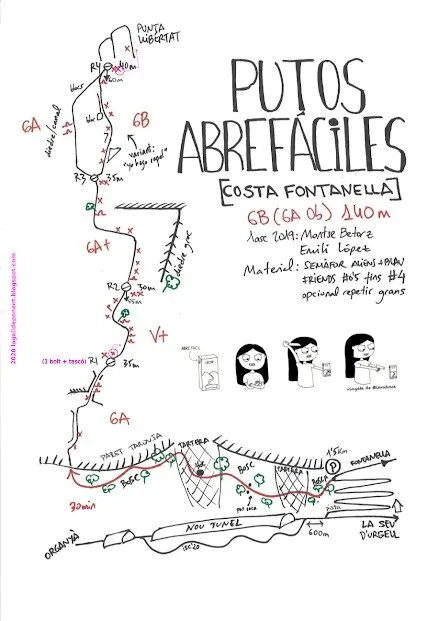 PUNTA
LLIBERTAT
R4
40m
60m
bloc
bloc
6A
diedre/canal
6B
variant:
R3
35m
PUTOS
ABREFÁCILES
[COSTA FONTANELLA]
6B (6A Ob) 140m
1asc 2019: Montse Betorz
Emili López
Material: SEMÀFOR ALIENS + BLAU
FRIENDS #0'5 fins #4
opcional repetir grans
6A+
diedre groc
R2
30m
V+
(1 bolt + tascó)
R1
35m
6A
2020 lagalidepenart.blogspot.com
ABRE FÁCIL
PARET TARONJA
TARTERA
BOSC
BOSC
TARTERA
BOSC
30min
P
1'5Km
FONTANELLA
pista
NOU TUNEL
600m
ORGANYÀ
LA SEU
D'URGELL